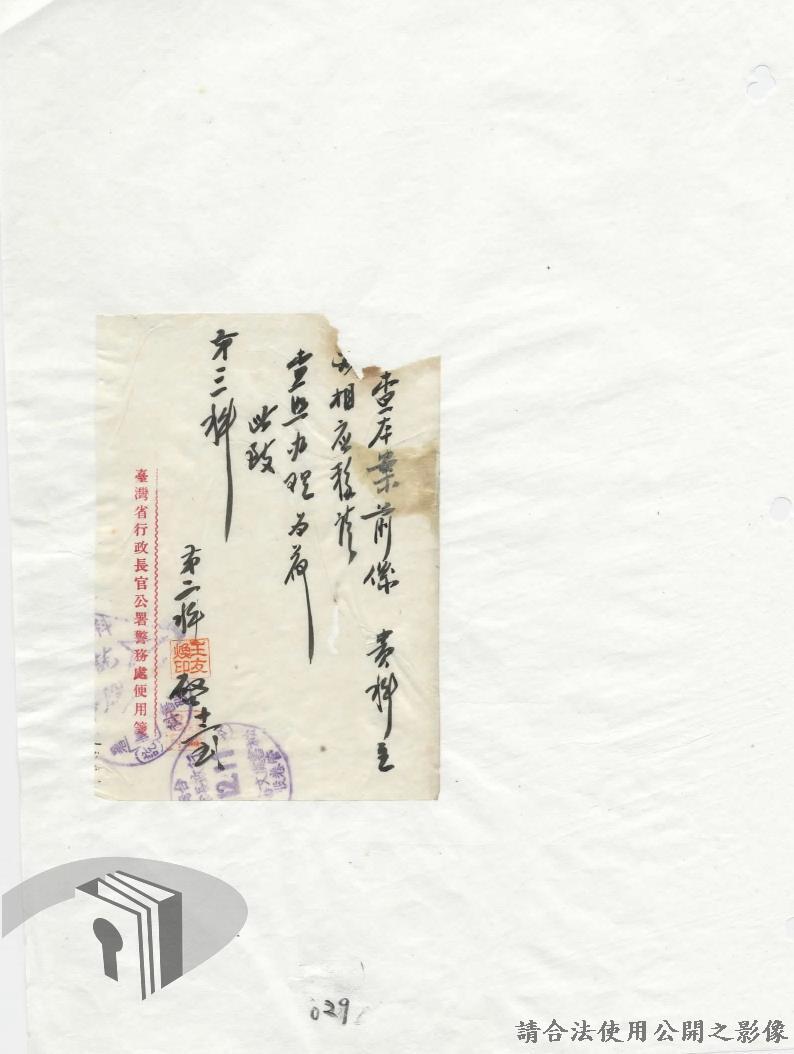 查本案前係 貴科主
相应移請
查照办理为荷
此致
第三科
第二科 王友煥印 啓 十二
臺灣省行政長官公署警務處使用箋
12.11
029
請合法使用公開之影像